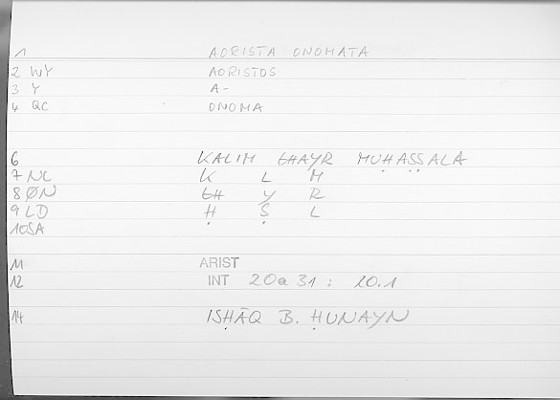 1 AORISTA ONOMATA
2 WY AORISTOS
3 Y A-
4 QC ONOMA
6 KALIM GHAYR MUḤAṢṢALA
7 NC K L M
8 ØN GH Y R
9 LD Ḥ Ṣ L
10 SA
11 ARIST
12 INT 20a 31 : 20.1
14 ISḤĀQ B. ḤUNAYN